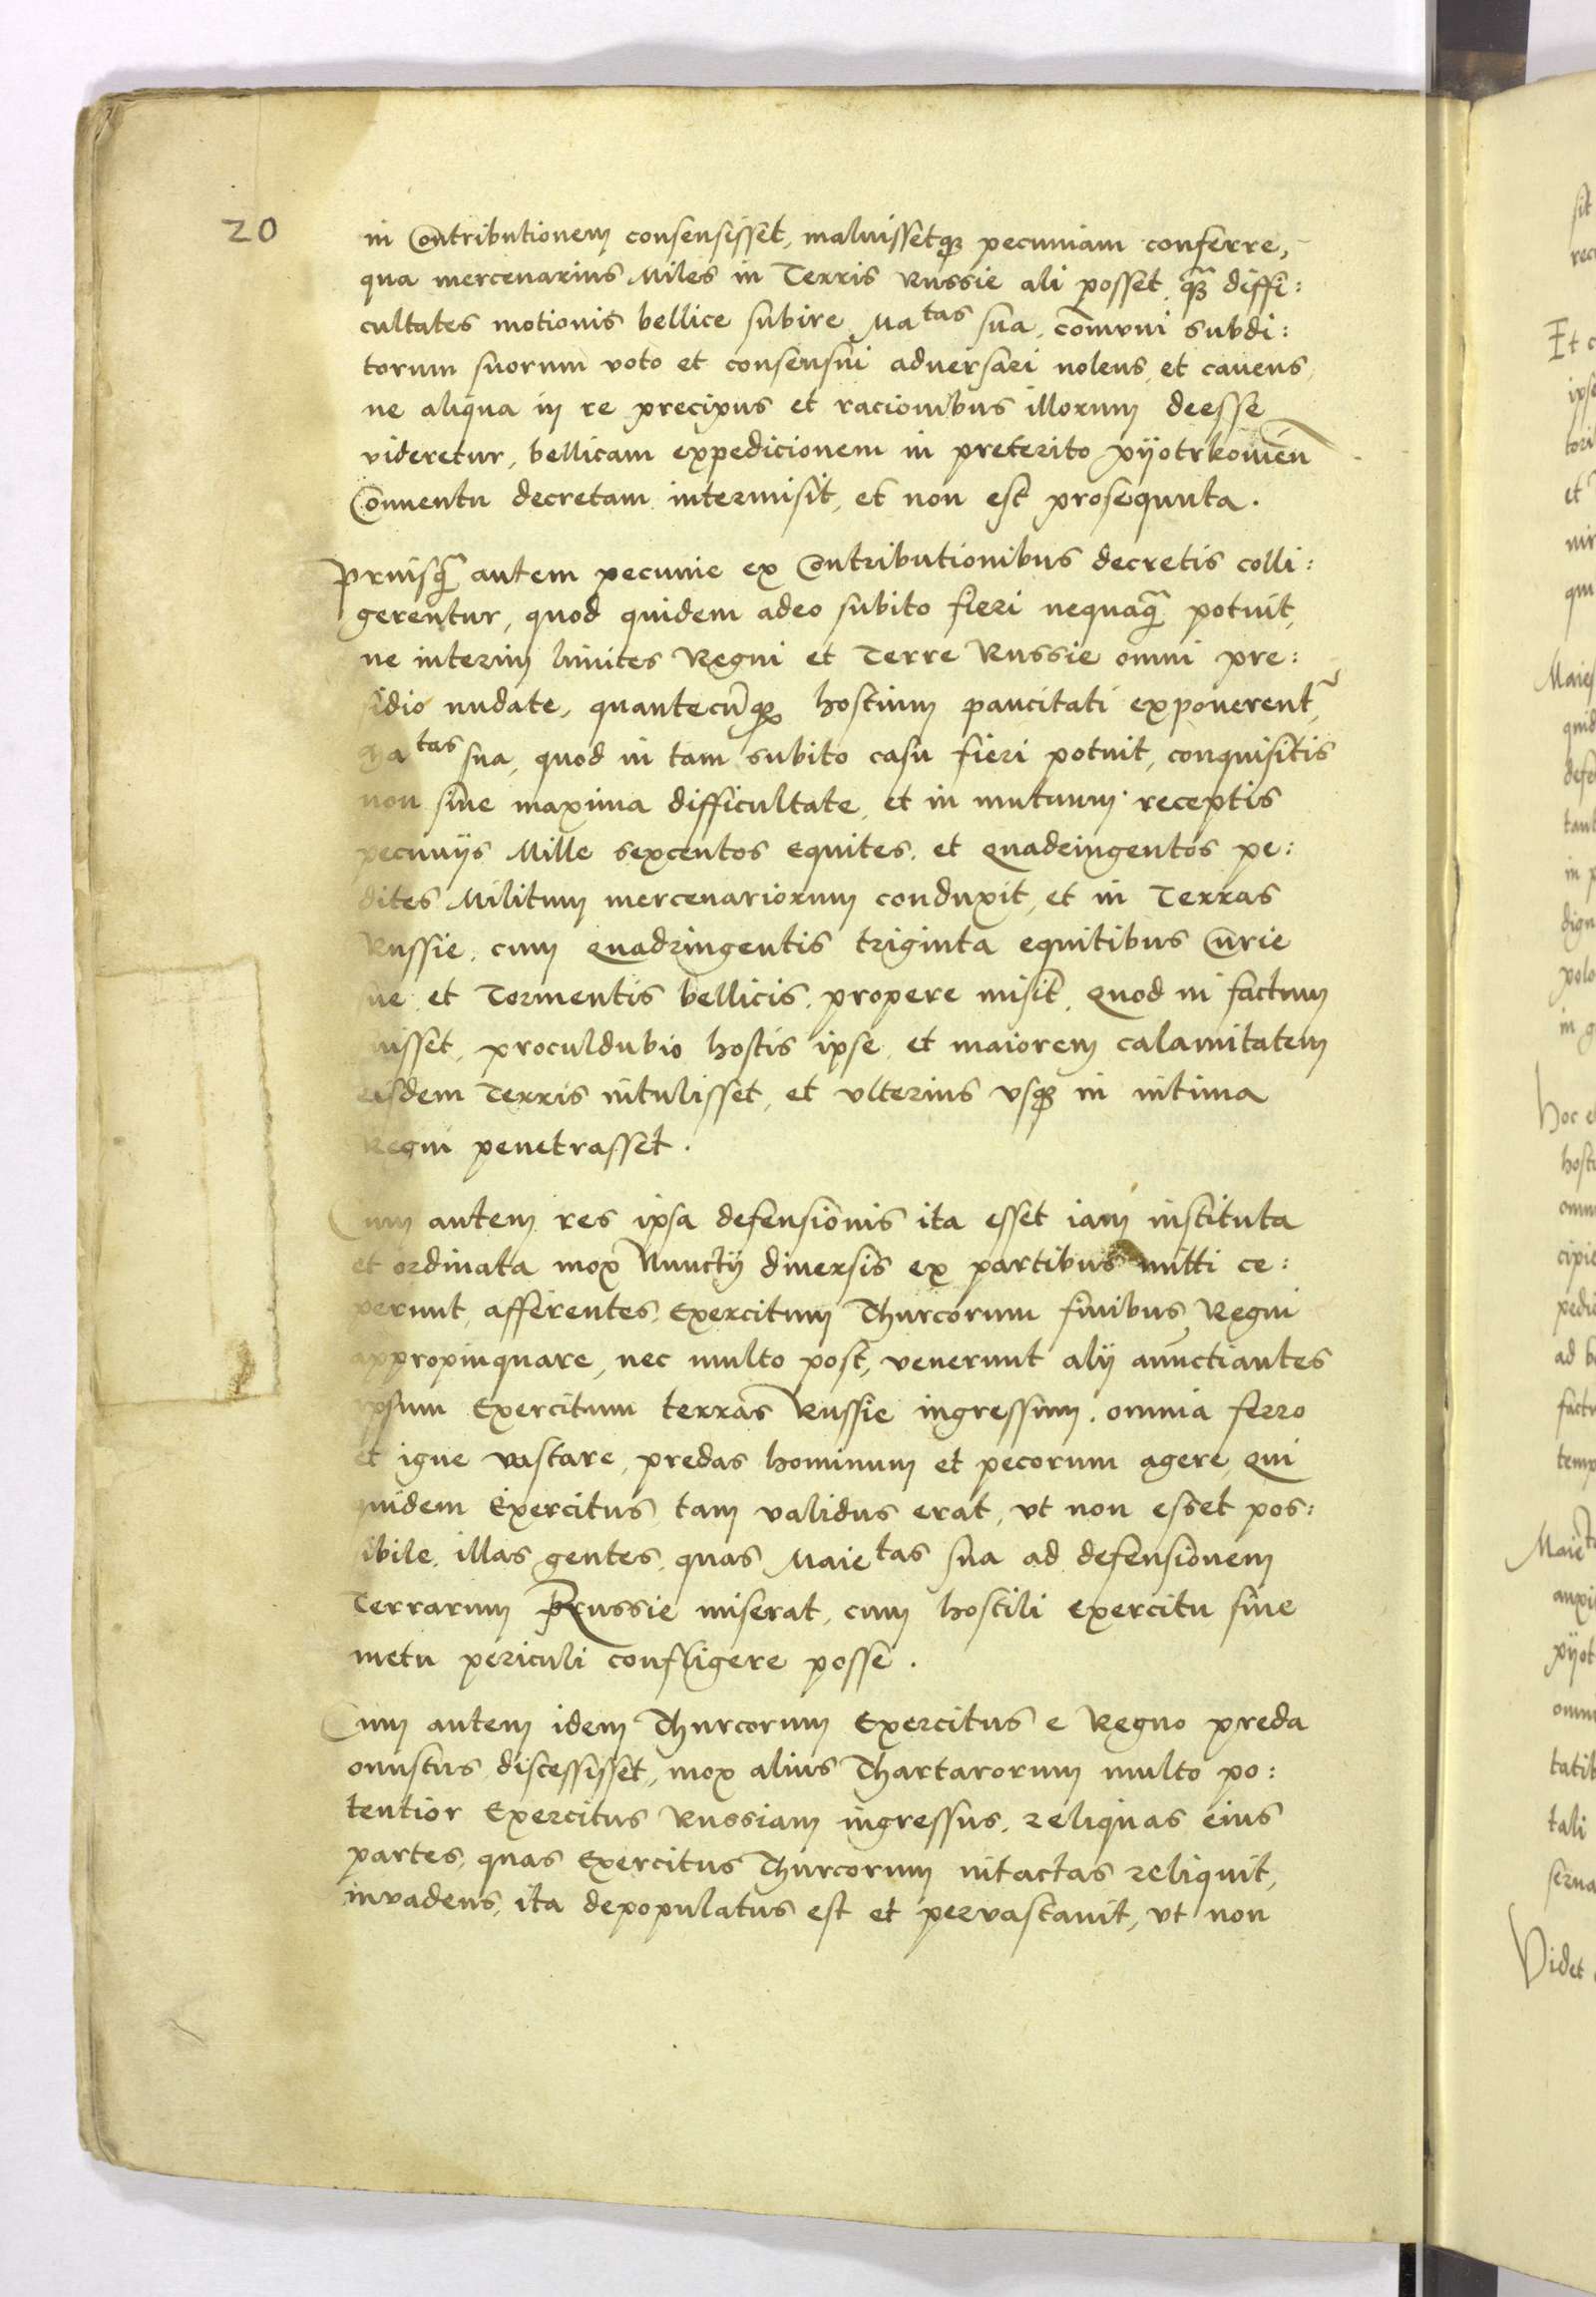 20
in Contributionem consensisset, maluissetqꝫ pecuniam conferre,
qua mercenarius Miles in Terris Russie ali posset, qꝫ̃ diffi:
cultates motionis bellice subire, Matas sua, com̃uni subdi:
torum suorum voto et consensui aduersari nolens, et cauens,
ne aliqua in re precipus et racionibus illorum deesse
videretur, bellicam expedicionem in preterito pyotrkowień
Conuentu decretam intermisit, et non est prosequuta.
Priusq̃ autem pecunie ex Contributionibus decretis colli:
gerentur, quod quidem adeo subito fieri nequaq̃ potuit,
ne interim limites Regni et Terre Russie omni pre:
sidio nudate, quantecũqꝫ hostium paucitati exponerent᷑,
Matas sua, quod in tam subito casu fieri potuit, conquisitis
non sine maxima difficultate, et in mutuum receptis
pecunijs Mille sexcentos equites, et quadringentos pe:
dites Militum mercenariorum conduxit, et in Terras
Russie, cum quadringentis triginta equitibus Curie
sue, et Tormentis bellicis, propere misit, quod ni factum
fuisset, proculdubio hostis ipse, et maiorem calamitatem
eisdem Terris intulisset, et vlterius vsqꝫ in intima
Regni penetrasset.
Cum autem res ipsa defensionis ita esset iam instituta
et ordinata mox Nunctij diuersis ex partibus mitti ce:
perunt, afferentes, Exercitum Thurcorum finibus Regni
appropinquare, nec multo post, venerunt alij anuncti antes
ipsum Exercitum terras Russie ingressum, omnia ferro
et igne vastare, predas hominum et pecorum agere, qui
quidem Exercitus tam validus erat, vt non esset pos:
sibile, illas gentes, quas Maietas sua ad defensionem
Terrarum Russie miserat, cum hostili exercitu sine
metu periculi confligere posse.
Cum autem idem Thurcorum Exercitus e Regno preda
onustus discessisset, mox alius Thartarorum multo po:
tentior Exercitus Russiam ingressus, reliquas eius
partes, quas Exercitus Thurcorum intactas reliquit,
inuadens, ita depopulatus est et peruastauit, vt non